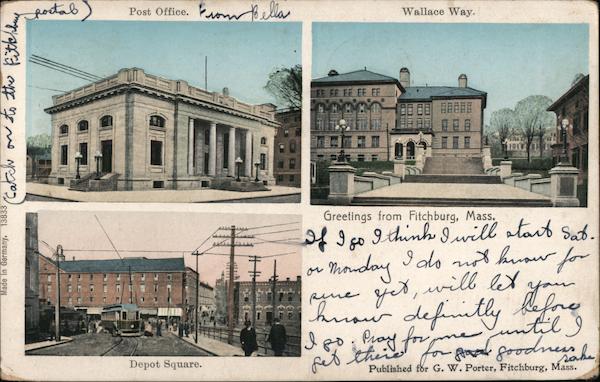 (Catch on to the Fitchburg
postal)
Post Office.
From Bella
Wallace Way.
Made in Germany. 13833
Greetings from Fitchburg, Mass.
If I go I think I will start Sat.
or Monday I do not know for
sure yet, will let you
know definitly before
I go. Pray for me until I
get there for goodness
sake
Depot Square.
Published for G. W. Porter, Fitchburg, Mass.